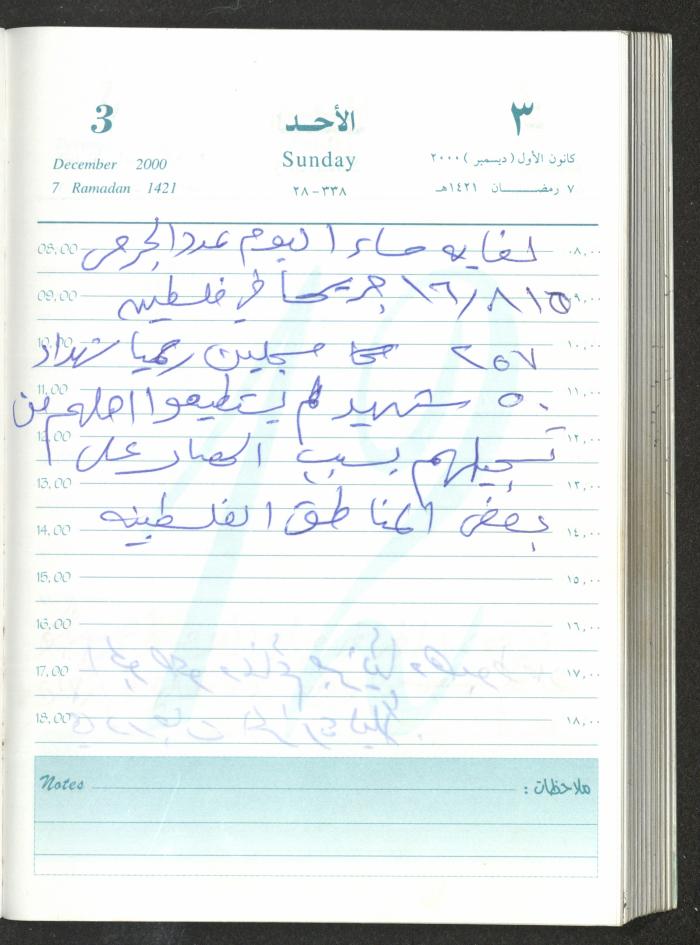 3 الأحد ٣
December 2000 Sunday كانون الأول (ديسمبر) ٢٠٠٠
7 Ramadan 1421 ٢٨-٣٣٨ ٧ رمضان ١٤٢١هـ
08.00 لغاية مساء اليوم عدد الجرحى ٠٨,٠٠
09.00 ١٦/٨١٥ جريحاً في فلسطين ٠٩,٠٠
10.00 ٢٥٧ مسجلين رسمياً شهداء ١٠,٠٠
11.00 ٥٠ شهيد لم يستطيعوا اهلهم من ١١,٠٠
12.00 تسجيلهم بسبب الحصار على ١٢,٠٠
13.00 ١٣,٠٠
14.00 بعض المناطق الفلسطينيه ١٤,٠٠
15.00 ١٥,٠٠
16.00 ١٦,٠٠
17.00 ١٧,٠٠
18.00 ١٨,٠٠
Notes ملاحظات :